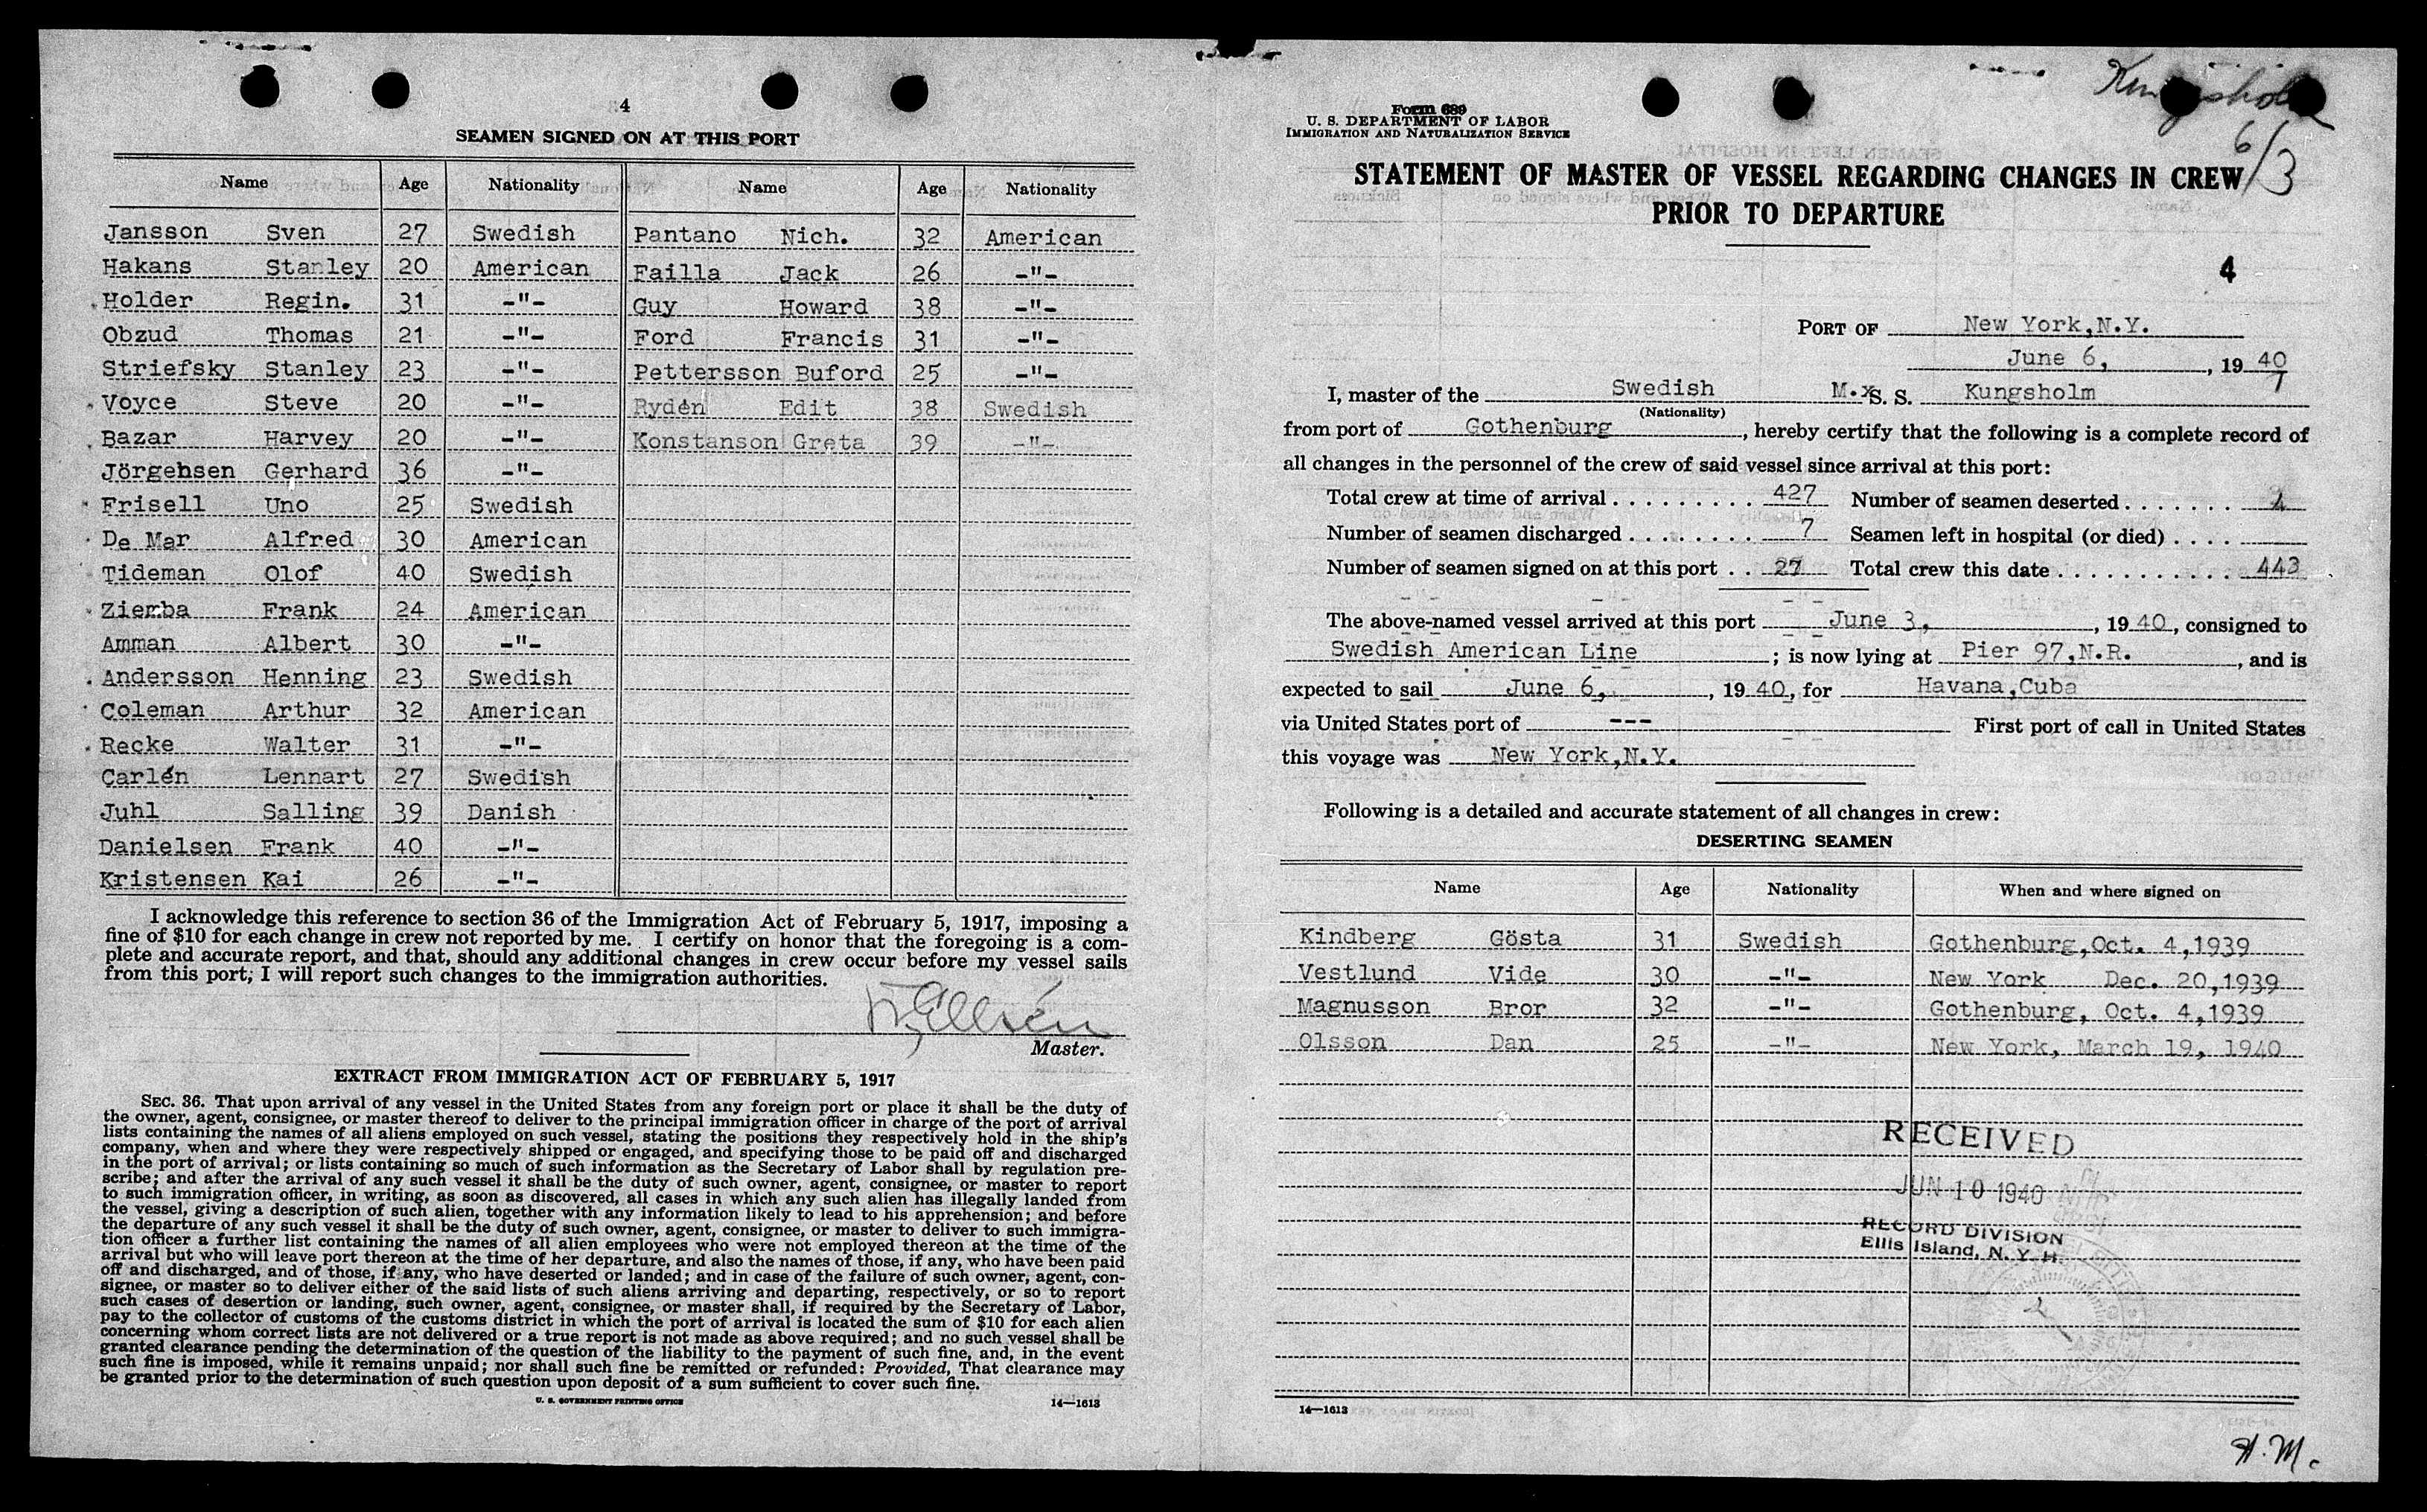 4
SEAMEN SIGNED ON AT THIS PORT
Name Age Nationality Name Age Nationality
Jansson Sven 27 Swedish Pantano Nich. 32 American
Hakans Stanley 20 American Failla Jack 26 -"-
Holder Regin. 31 -"- Guy Howard 38 -"-
Obzud Thomas 21 -"- Ford Francis 31 -"-
Striefsky Stanley 23 -"- Pettersson Buford 25 -"-
Voyce Steve 20 -"- Rydén Edit 38 Swedish
Bazar Harvey 20 -"- Konstanson Greta 39 -"-
Jörgehsen Gerhard 36 -"-
Frisell Uno 25 Swedish
De Mar Alfred 30 American
Tideman Olof 40 Swedish
Ziemba Frank 24 American
Amman Albert 30 -"-
Andersson Henning 23 Swedish
Coleman Arthur 32 American
Recke Walter 31 -"-
Carlén Lennart 27 Swedish
Juhl Salling 39 Danish
Danielsen Frank 40 -"-
Kristensen Kai 26 -"-
I acknowledge this reference to section 36 of the Immigration Act of February 5, 1917, imposing a
fine of $10 for each change in crew not reported by me. I certify on honor that the foregoing is a com-
plete and accurate report, and that, should any additional changes in crew occur before my vessel sails
from this port, I will report such changes to the immigration authorities.
Master.
EXTRACT FROM IMMIGRATION ACT OF FEBRUARY 5, 1917
SEC. 36. That upon arrival of any vessel in the United States from any foreign port or place it shall be the duty of
the owner, agent, consignee, or master thereof to deliver to the principal immigration officer in charge of the port of arrival
lists containing the names of all aliens employed on such vessel, stating the positions they respectively hold in the ship's
company, when and where they were respectively shipped or engaged, and specifying those to be paid off and discharged
in the port of arrival; or lists containing so much of such information as the Secretary of Labor shall by regulation pre-
scribe; and after the arrival of any such vessel it shall be the duty of such owner, agent, consignee, or master to report
to such immigration officer, in writing, as soon as discovered, all cases in which any such alien has illegally landed from
the vessel, giving a description of such alien, together with any information likely to lead to his apprehension; and before
the departure of any such vessel it shall be the duty of such owner, agent, consignee, or master to deliver to such immigra-
tion officer a further list containing the names of all alien employees who were not employed thereon at the time of the
arrival but who will leave port thereon at the time of her departure, and also the names of those, if any, who have been paid
off and discharged, and of those, if any, who have deserted or landed; and in case of the failure of such owner, agent, con-
signee, or master so to deliver either of the said lists of such aliens arriving and departing, respectively, or so to report
such cases of desertion or landing, such owner, agent, consignee, or master shall, if required by the Secretary of Labor,
pay to the collector of customs of the customs district in which the port of arrival is located the sum of $10 for each alien
concerning whom correct lists are not delivered or a true report is not made as above required; and no such vessel shall be
granted clearance pending the determination of the question of the liability to the payment of such fine, and, in the event
such fine is imposed, while it remains unpaid; nor shall such fine be remitted or refunded: Provided, That clearance may
be granted prior to the determination of such question upon deposit of a sum sufficient to cover such fine.
U. S. GOVERNMENT PRINTING OFFICE 14—1613
Kungsholm
6/3
Form 689
U. S. DEPARTMENT OF LABOR
IMMIGRATION AND NATURALIZATION SERVICE
STATEMENT OF MASTER OF VESSEL REGARDING CHANGES IN CREW
PRIOR TO DEPARTURE
4
PORT OF New York,N.Y.
June 6, , 19 40
I, master of the Swedish M.S. S. Kungsholm
(Nationality)
from port of Gothenburg , hereby certify that the following is a complete record of
all changes in the personnel of the crew of said vessel since arrival at this port:
Total crew at time of arrival . . . . . . . . . 427 Number of seamen deserted . . . . . . . 4
Number of seamen discharged . . . . . . . . 7 Seamen left in hospital (or died) . . . .
Number of seamen signed on at this port . . 27 Total crew this date . . . . . . . . . . . 443
The above-named vessel arrived at this port June 3, , 19 40, consigned to
Swedish American Line ; is now lying at Pier 97,N.R. , and is
expected to sail June 6, , 19 40, for Havana,Cuba
via United States port of --- First port of call in United States
this voyage was New York,N.Y.
Following is a detailed and accurate statement of all changes in crew:
DESERTING SEAMEN
Name Age Nationality When and where signed on
Kindberg Gösta 31 Swedish Gothenburg,Oct. 4,1939
Vestlund Vide 30 -"- New York Dec. 20,1939
Magnusson Bror 32 -"- Gothenburg, Oct. 4,1939
Olsson Dan 25 -"- New York, March 19, 1940
RECEIVED
JUN 10 1940
RECORD DIVISION
Ellis Island, N. Y. H.
14—1613
H.M.